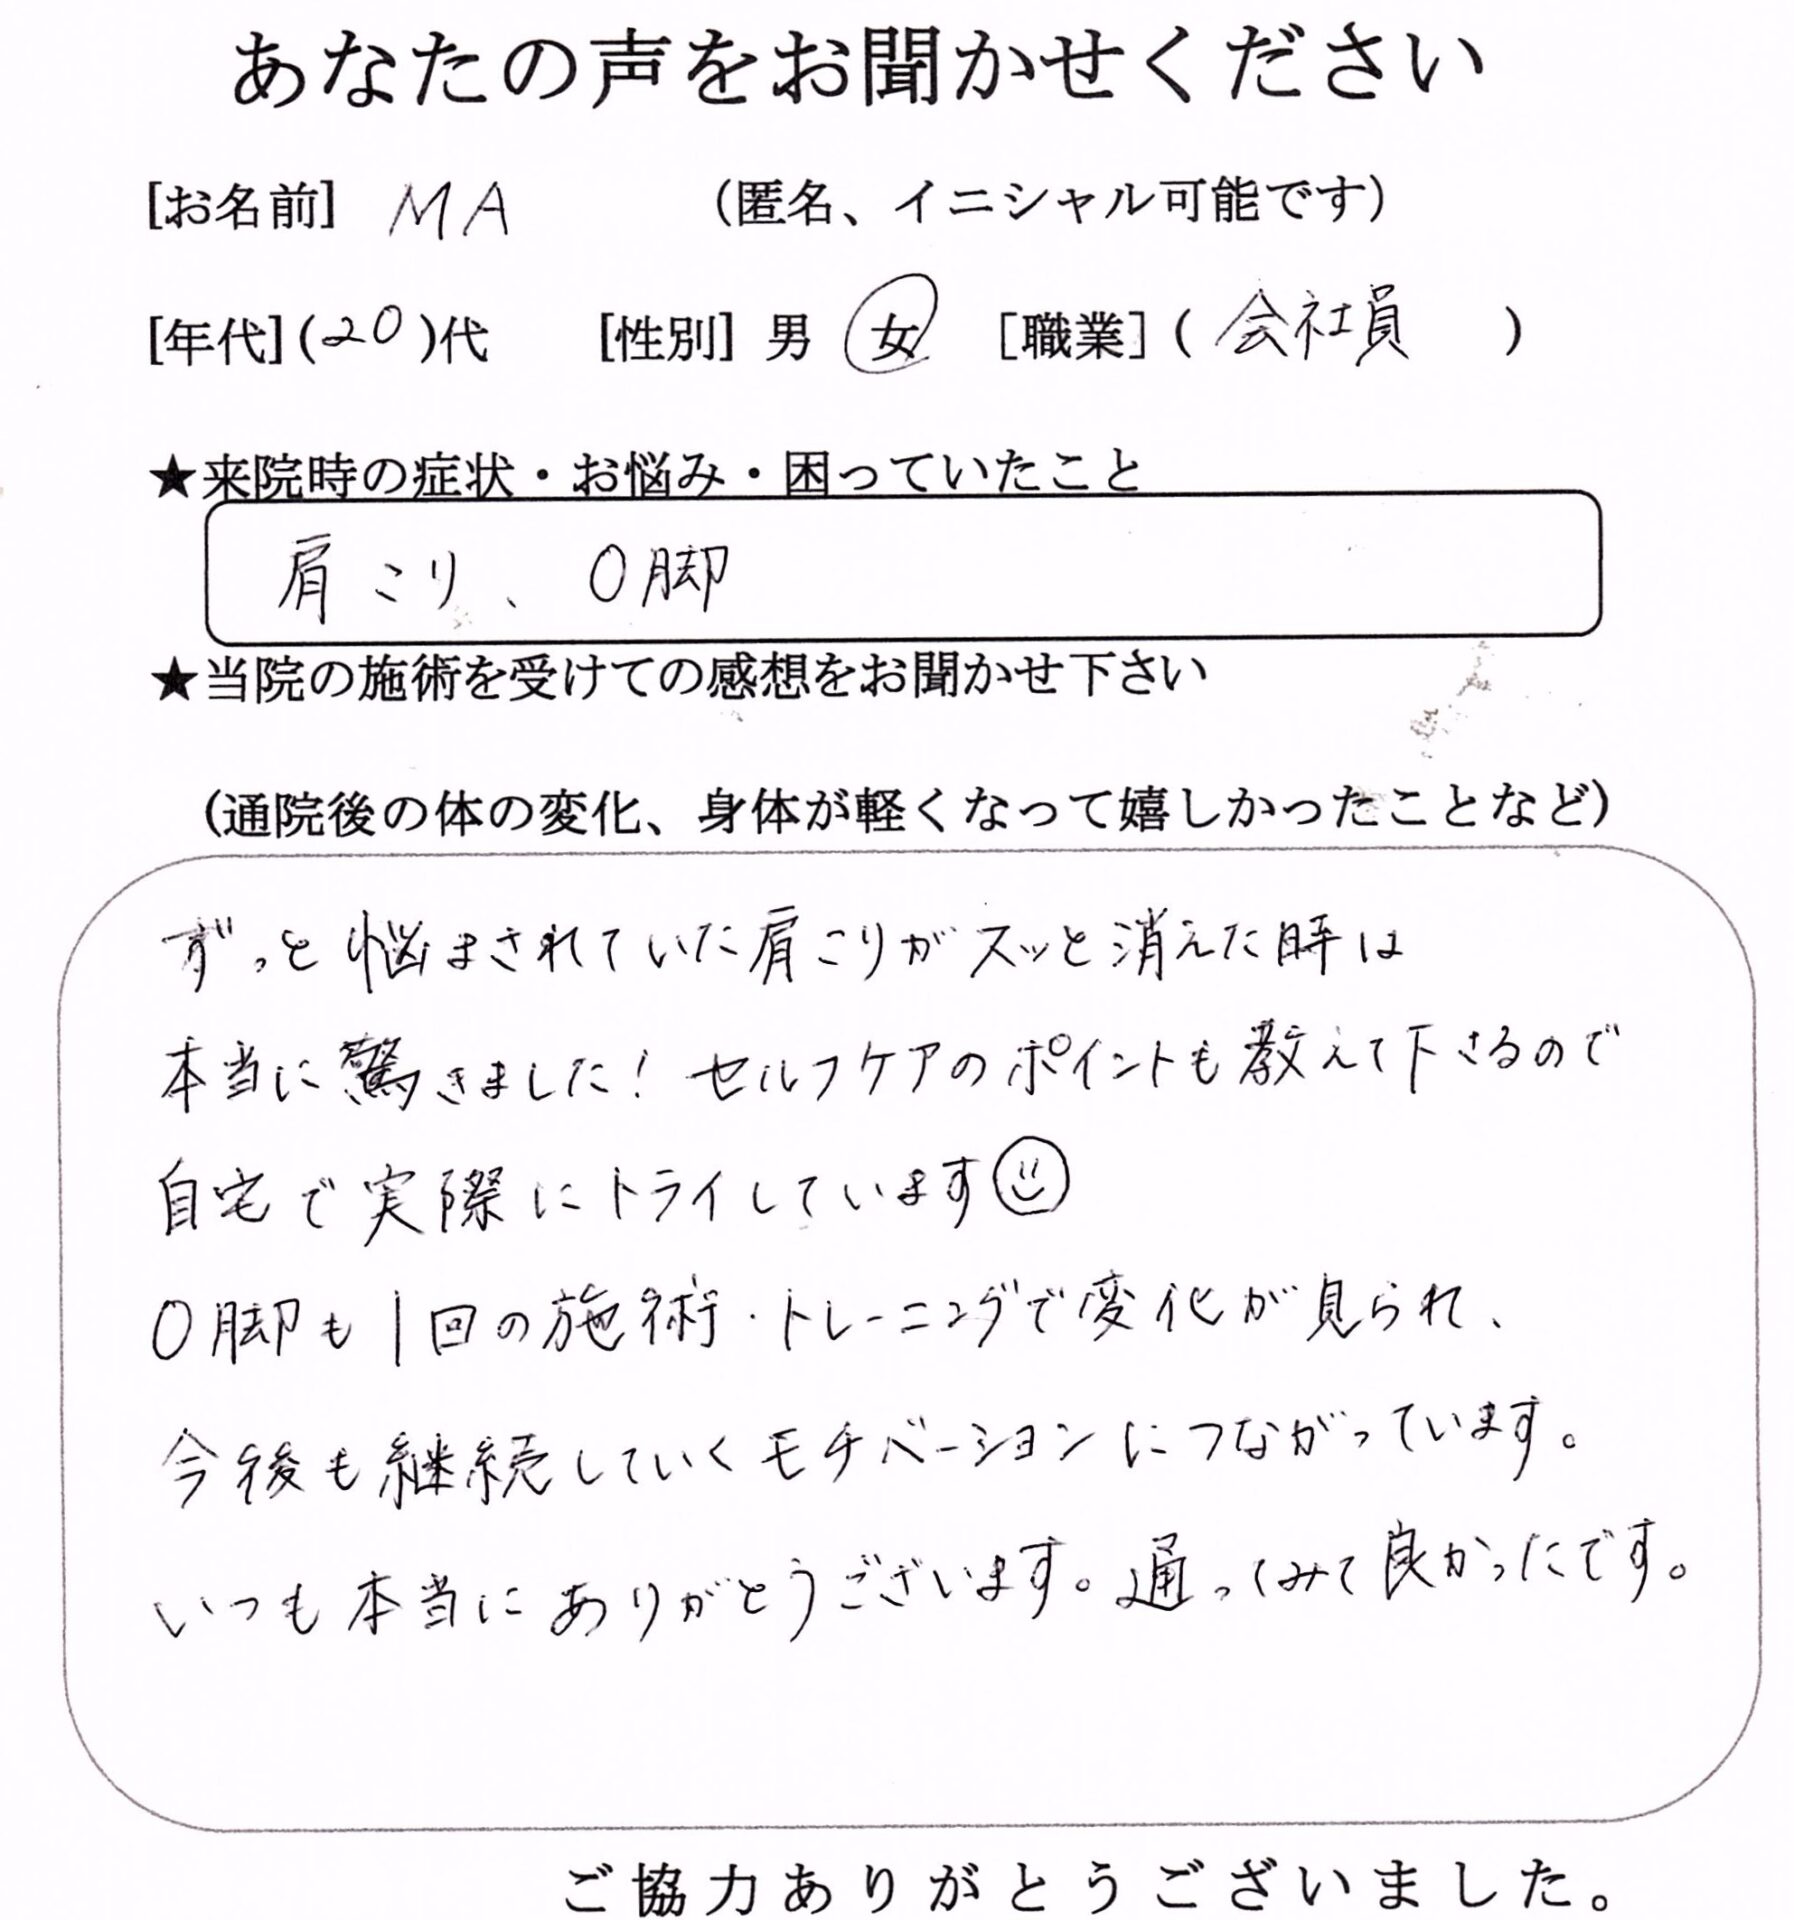 あなたの声をお聞かせください
[お名前] MA (匿名、イニシャル可能です)
[年代](20)代 [性別] 男 女 [職業](会社員)
★来院時の症状・お悩み・困っていたこと
肩こり、O脚
★当院の施術を受けての感想をお聞かせ下さい
(通院後の体の変化、身体が軽くなって嬉しかったことなど)
ずっと悩まされていた肩こりがスッと消えた時は
本当に驚きました!セルフケアのポイントも教えて下さるので
自宅で実際にトライしています
O脚も1回の施術・トレーニングで変化が見られ、
今後も継続していくモチベーションにつながっています。
いつも本当にありがとうございます。通ってみて良かったです。
ご協力ありがとうございました。